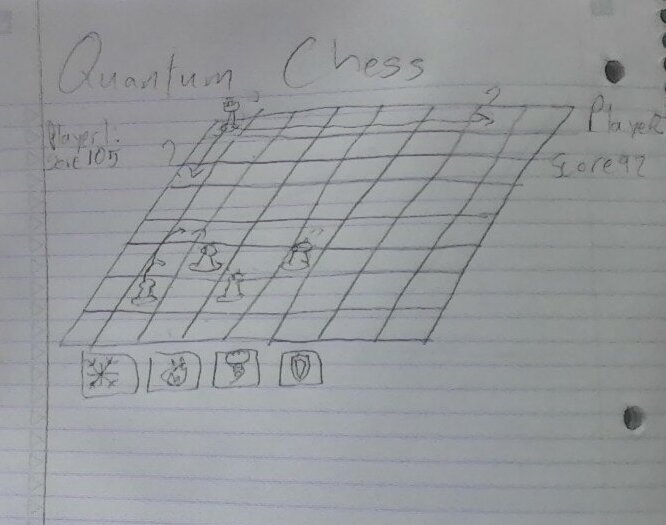 Quantum Chess
?
Player 1:
Score 105
?
Player 2
Score 92
?